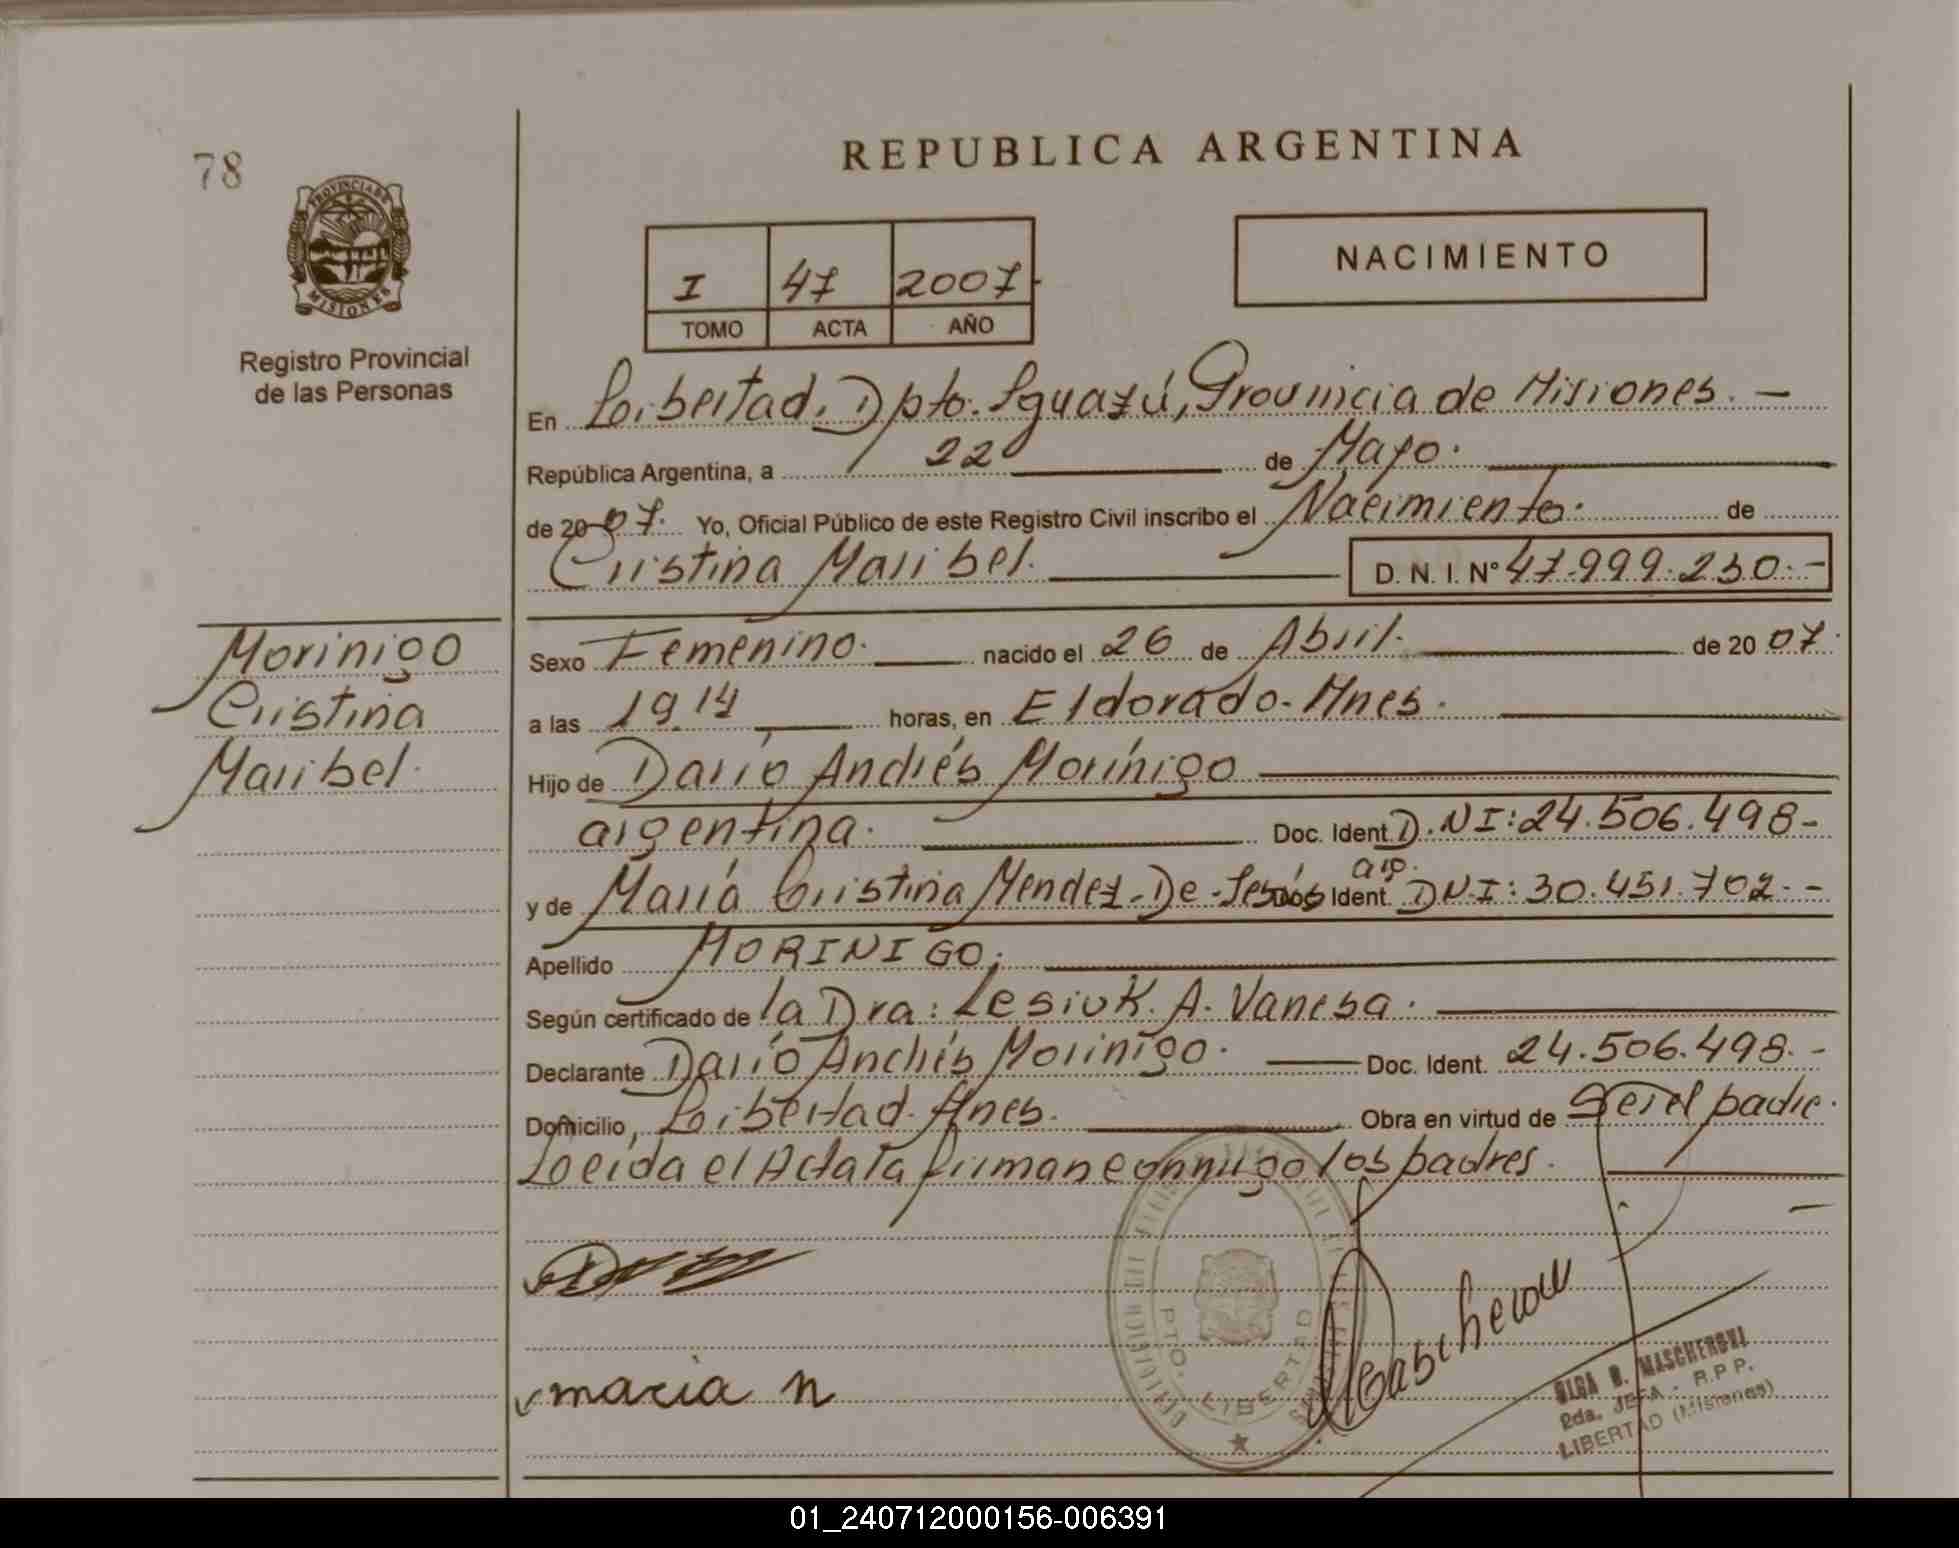 78
REPUBLICA ARGENTINA
PROVINCIA DE
MISIONES
Registro Provincial
de las Personas
NACIMIENTO
I 47 2007
TOMO ACTA AÑO
En Libertad, Dpto. Iguazú, Provincia de Misiones. —
República Argentina, a 22 de Mayo.
de 2007. Yo, Oficial Público de este Registro Civil inscribo el Nacimiento. de
Cristina Maribel. D. N. I. Nº 47.999.230.-
Morinigo
Cristina
Maribel.
Sexo Femenino. nacido el 26 de Abril. de 2007.
a las 19,14 horas, en Eldorado-Mnes.
Hijo de Darío Andrés Morínigo
argentina. Doc. Ident. D.NI: 24.506.498-
y de María Cristina Mendez-De-Jesús arg. Doc. Ident. DN.I: 30.451.702.-
Apellido MORINIGO.
Según certificado de la Dra: Lesiuk. A. Vanesa.
Declarante Darío Andrés Morinigo. Doc. Ident. 24.506.498.-
Domicilio, Libertad. Mnes. Obra en virtud de Ser el padre.
Leida el Acta la firman conmigo los padres.
maria n
PTO. LIBERTAD
OLGA B.
2da. JEFA - R.P.P.
LIBERTAD (Misiones)
01_240712000156-006391